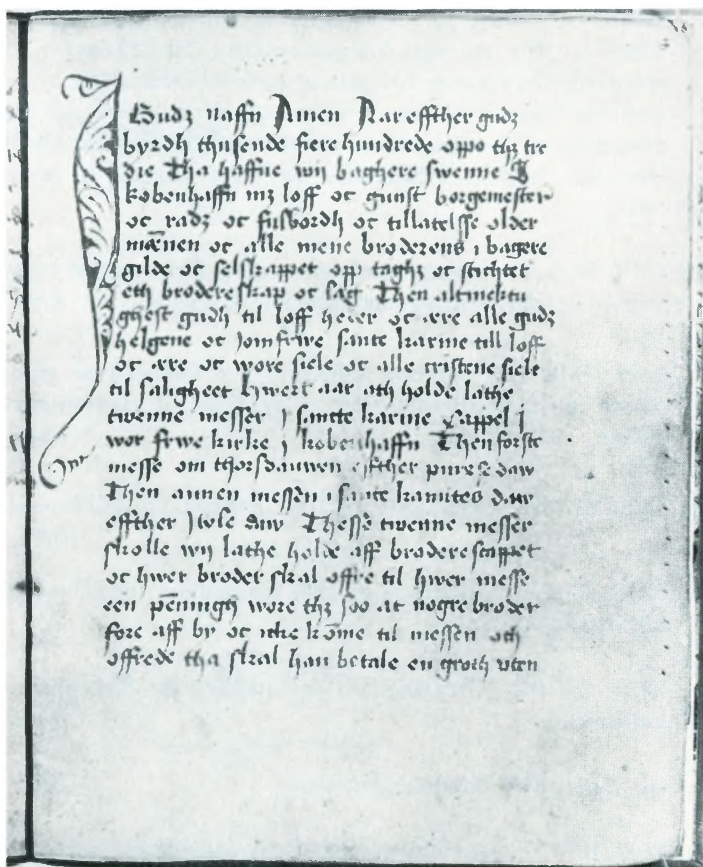 I Gudz naffn Amen Aar effther gudz
byrdh thusende fiere hundrede oppo thz tre
die Tha haffue wij baghere swenne I
kobenhaffn mz loff oc gunst borgemester
oc radz oc fulbordh oc tillatelsse older
mænen oc alle mene broderens i bagere
gilde oc selskappet opp taghz oc stichtet
eth brodereskap oc lag Then altmektu
ghest gudh til loff heder oc ære alle gudz
helgene oc Jomfrwe sante karine till loff
oc ære oc wore siele oc alle cristene siele
til saligheet hwert aar ath holde lathe
twenne messer J sancte karine Cappel j
wor frwe kirke j kobenhaffn Then forste
messe om thorsdauwen effther purese daw
Then annen messen i sante kanutes daw
effther Jwle daw Thesse twenne messer
skolle wij lathe holde aff brodere scappet
oc hwer broder skal offre til hwer messe
een pēningh wore thz soo at nogre broder
fore aff by oc icke kōme til messen och
offrede tha skal han betale en groth vten